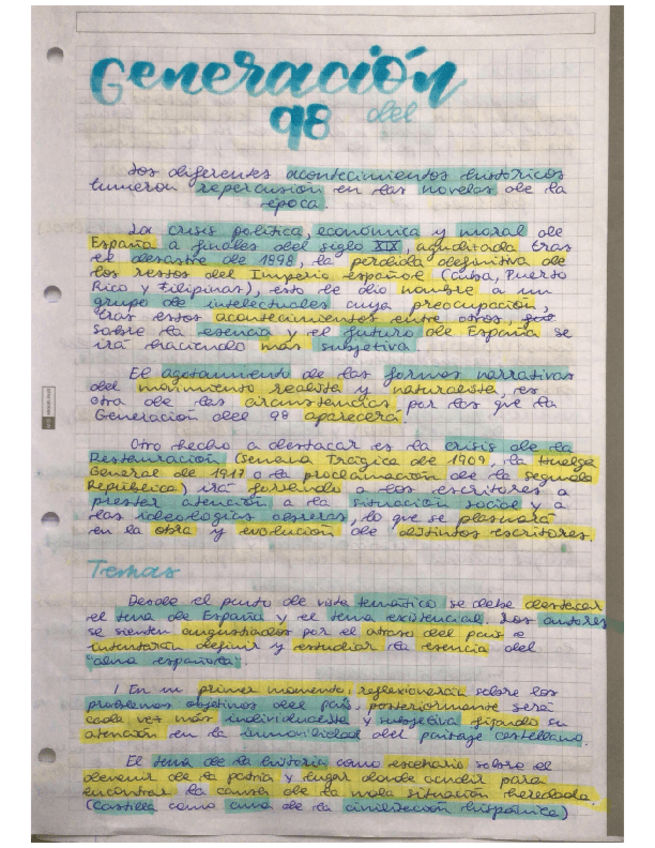 Generación
del
98
Los diferentes acontecimientos históricos
tuvieron repercusión en las novelas de la
época.
La crisis política, económica y moral de
España a finales del siglo XIX, agudizada tras
el desastre de 1898, la pérdida definitiva de
los restos del Imperio español (Cuba, Puerto
Rico y Filipinas), esto de dio nombre a un
grupo de intelectuales cuya preocupación,
tras estos acontecimientos entre otros,
sobre la esencia y el futuro de España se
irá haciendo más subjetiva
El agotamiento de las formas narrativas
del movimiento realista y naturalista, es
otra de las circunstancias por las que la
Generación del 98 aparecerá.
Otro hecho a destacar es la crisis de la
Restauración (Semana Trágica de 1909, la Huelga
General de 1917 o la proclamación de la segunda
República) irá forzando a los escritores a
prestar atención a la situación social y a
las ideologías obreras, lo que se plasmará
en la obra y evolución de distintos escritores.
Temas
Desde el punto de vista temático se debe destacar
el tema de España y el tema existencial. Los autores
se sienten angustiados por el atraso del país e
intentarán definir y estudiar la esencia del
"alma española".
En un primer momento, reflexionarán sobre los
problemas objetivos del país, posteriormente será
cada vez más individualista y subjetiva fijando su
atención en la inmovilidad del paisaje castellano.
El tema de la historia como escenario sobre el
devenir de la patria y lugar donde acudir para
encontrar la causa de la mala situación heredada
(Castilla como cuna de la civilización hispánica)